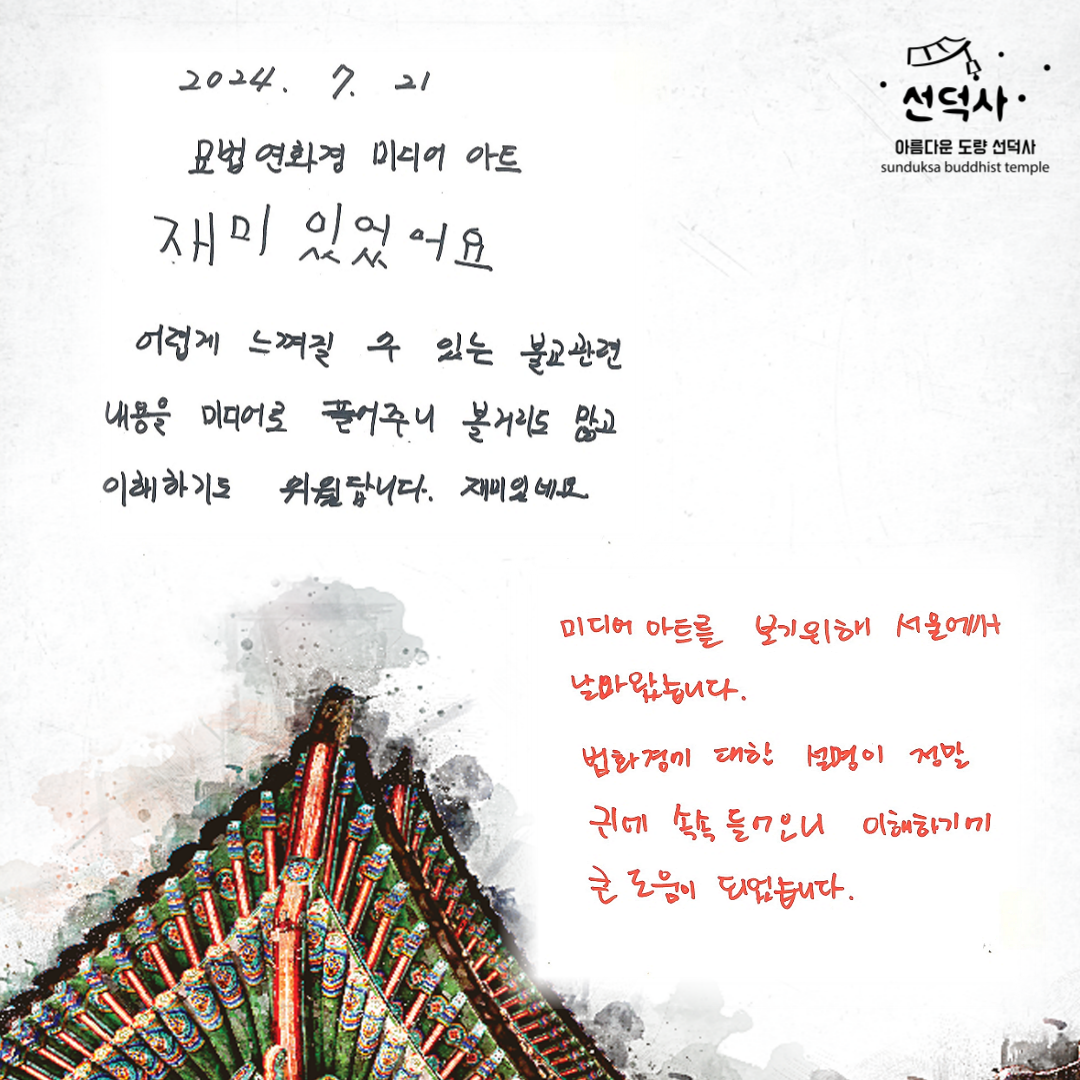 선덕사
아름다운 도량 선덕사
sunduksa buddhist temple
2024. 7. 21
묘법연화경 미디어 아트
재미 있었어요
어렵게 느껴질 수 있는 불교관련
내용을 미디어로 풀어주니 볼거리도 많고
이해하기도 쉬웠답니다. 재미있네요
미디어 아트를 보기위해 서울에서
날라왔습니다.
법화경에 대한 설명이 정말
귀에 속속들어오니 이해하기에
큰 도움이 되었습니다.